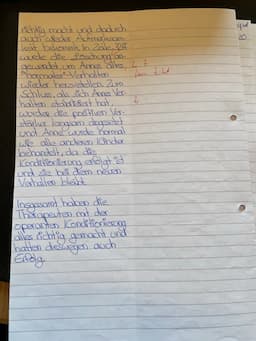 richtig macht und dadurch
auch wieder Aufmerksam
keit bekommt. In Zeile
wurde die "Löschung" an
gewendet um Annes altes
"normales" Verhalten
wieder herzustellen. Zum
Schluss, als sich Annes Ver
halten stabilisiert hat,
wurden die positiven Ver
stärker langsam abgesetzt
und Anne wurde normal
wie alle anderen Kinder
behandelt, da die
Konditionierung erfolgt ist
und sie bei dem neuen
Verhalten bleibt.
Insgesamt haben die
Therapeuten mit der
operanten Konditionierung
alles richtig gemacht und
hatten deswegen auch
Erfolg.